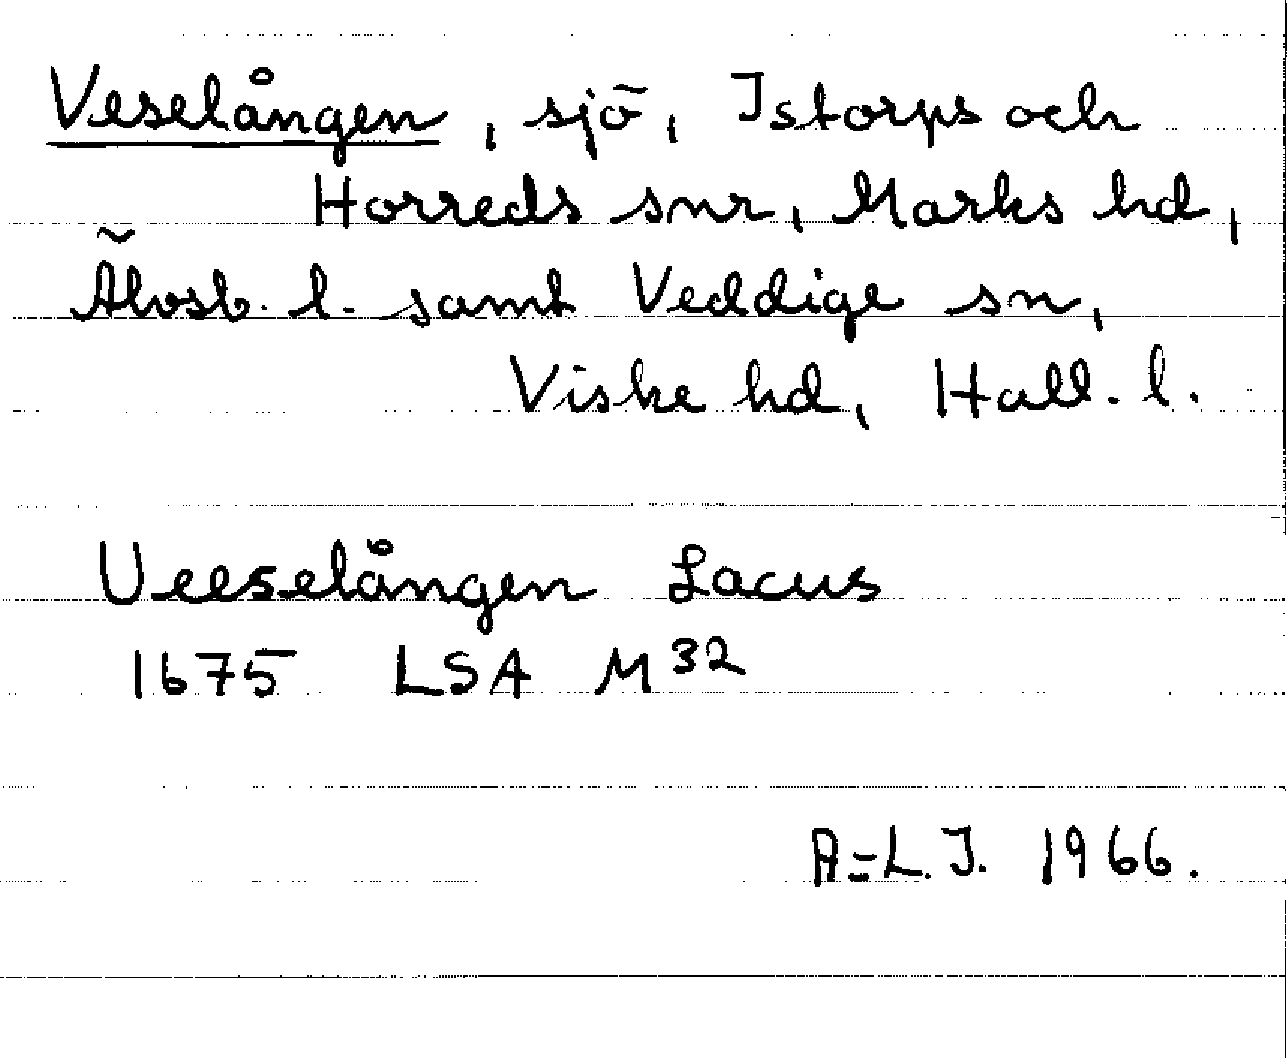 Veselången, sjö, Istorps och
Horreds snr, Marks hd,
Älvsb. l. samt Veddige sn,
Viske hd, Hall. l.
Ueeselången Lacus
1675 LSA M 32
A=L.J. 1966.